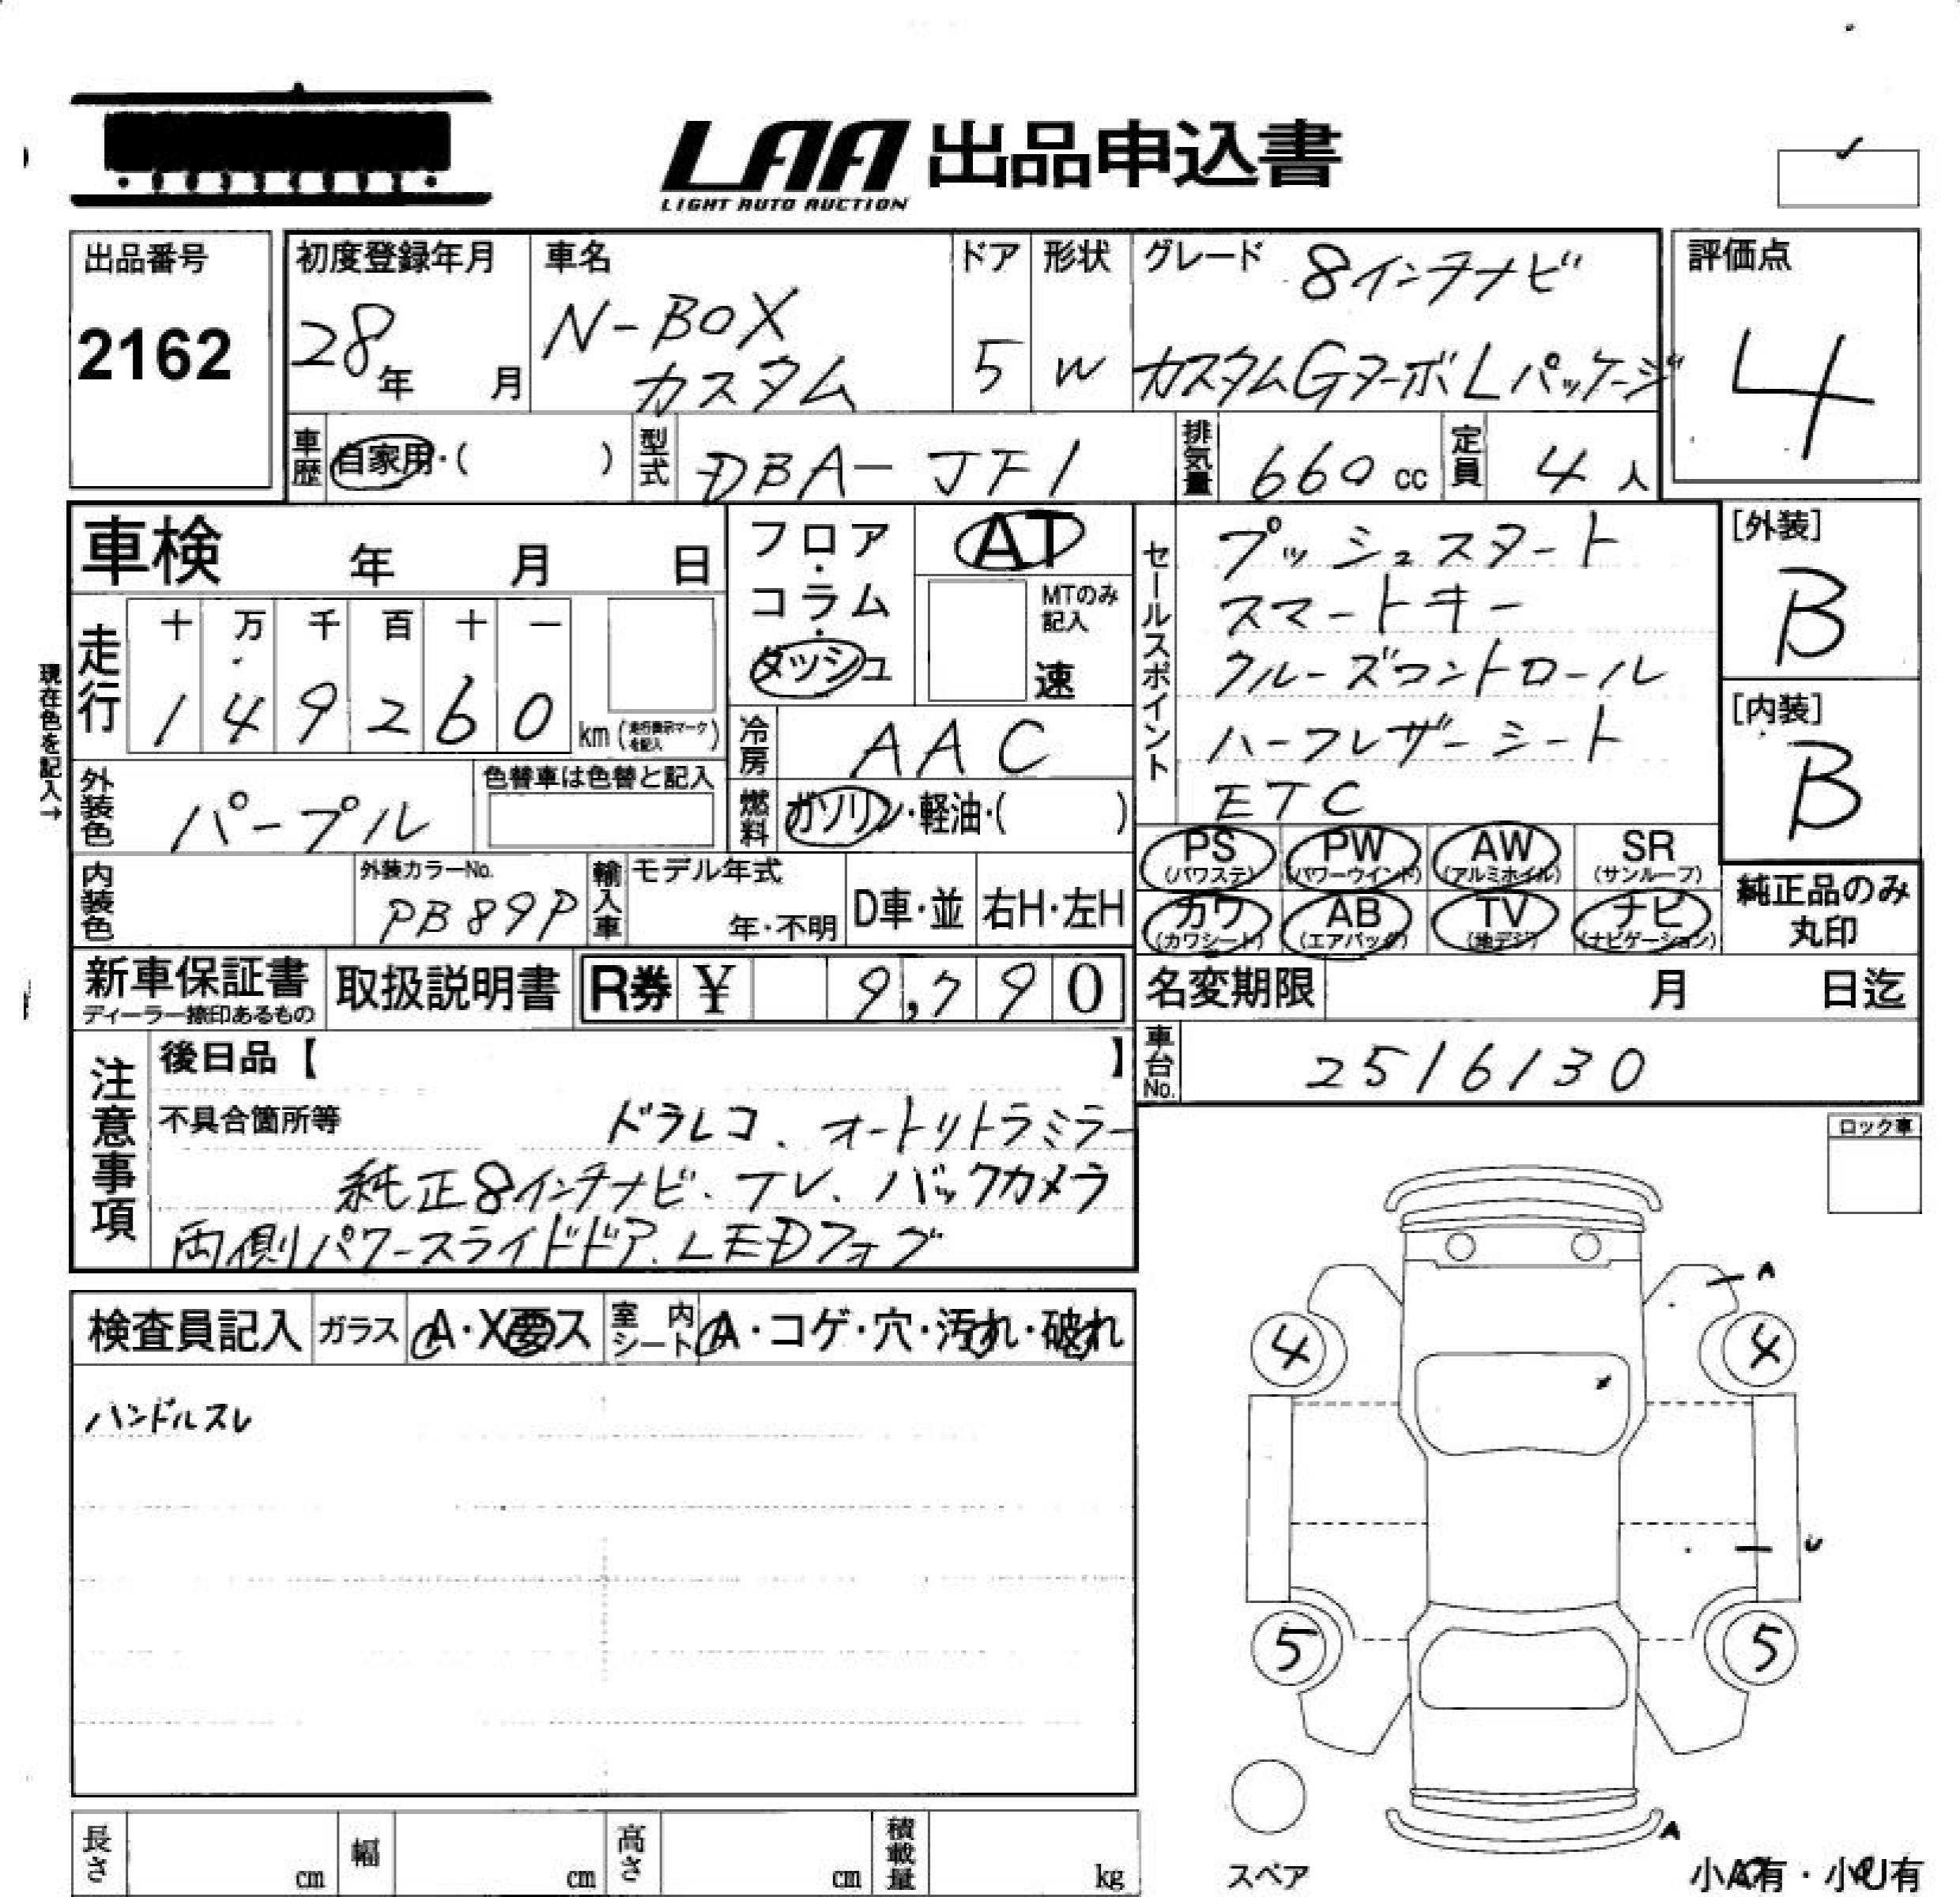 LAA 出品申込書
LIGHT AUTO AUCTION
出品番号
2162
初度登録年月
28年 月
車名
N-BOX
カスタム
ドア
5
形状
W
グレード
8インチナビ
カスタムGターボLパッケージ
評価点
4
車歴
自家用・( )
型式
DBA-JF1
排気量
660 cc
定員
4 人
車検 年 月 日
フロア・コラム・ダッシュ
AT
MTのみ記入
速
セールスポイント
プッシュスタート
スマートキー
クルーズコントロール
ハーフレザーシート
ETC
[外装]
B
[内装]
B
現在色を記入→
走行
十 万 千 百 十 一
1 4 9 2 6 0 km (走行表示マークを記入)
冷房
AAC
外装色
パープル
色替車は色替と記入
燃料
ガソリン・軽油・( )
内装色
外装カラーNo.
PB89P
輸入車
モデル年式
年・不明
D車・並
右H・左H
PS (パワステ)
PW (パワーウインド)
AW (アルミホイル)
SR (サンルーフ)
カワ (カワシート)
AB (エアバッグ)
TV (地デジ)
ナビ (ナビゲーション)
純正品のみ
丸印
新車保証書
ディーラー捺印あるもの
取扱説明書
R券 ¥ 9,790
名変期限 月 日迄
車台No.
2516130
注意事項
後日品【 】
不具合箇所等
ドラレコ、オートリトラミラー
純正8インチナビ、TV、バックカメラ
両側パワースライドドア、LEDフォグ
ロック車
検査員記入
ガラス
A・X要ス
室内シート
A・コゲ・穴・汚れ・破れ
ハンドルスレ
A
4
4
U
5
5
A
スペア
小A有・小U有
長さ cm
幅 cm
高さ cm
積載量 kg